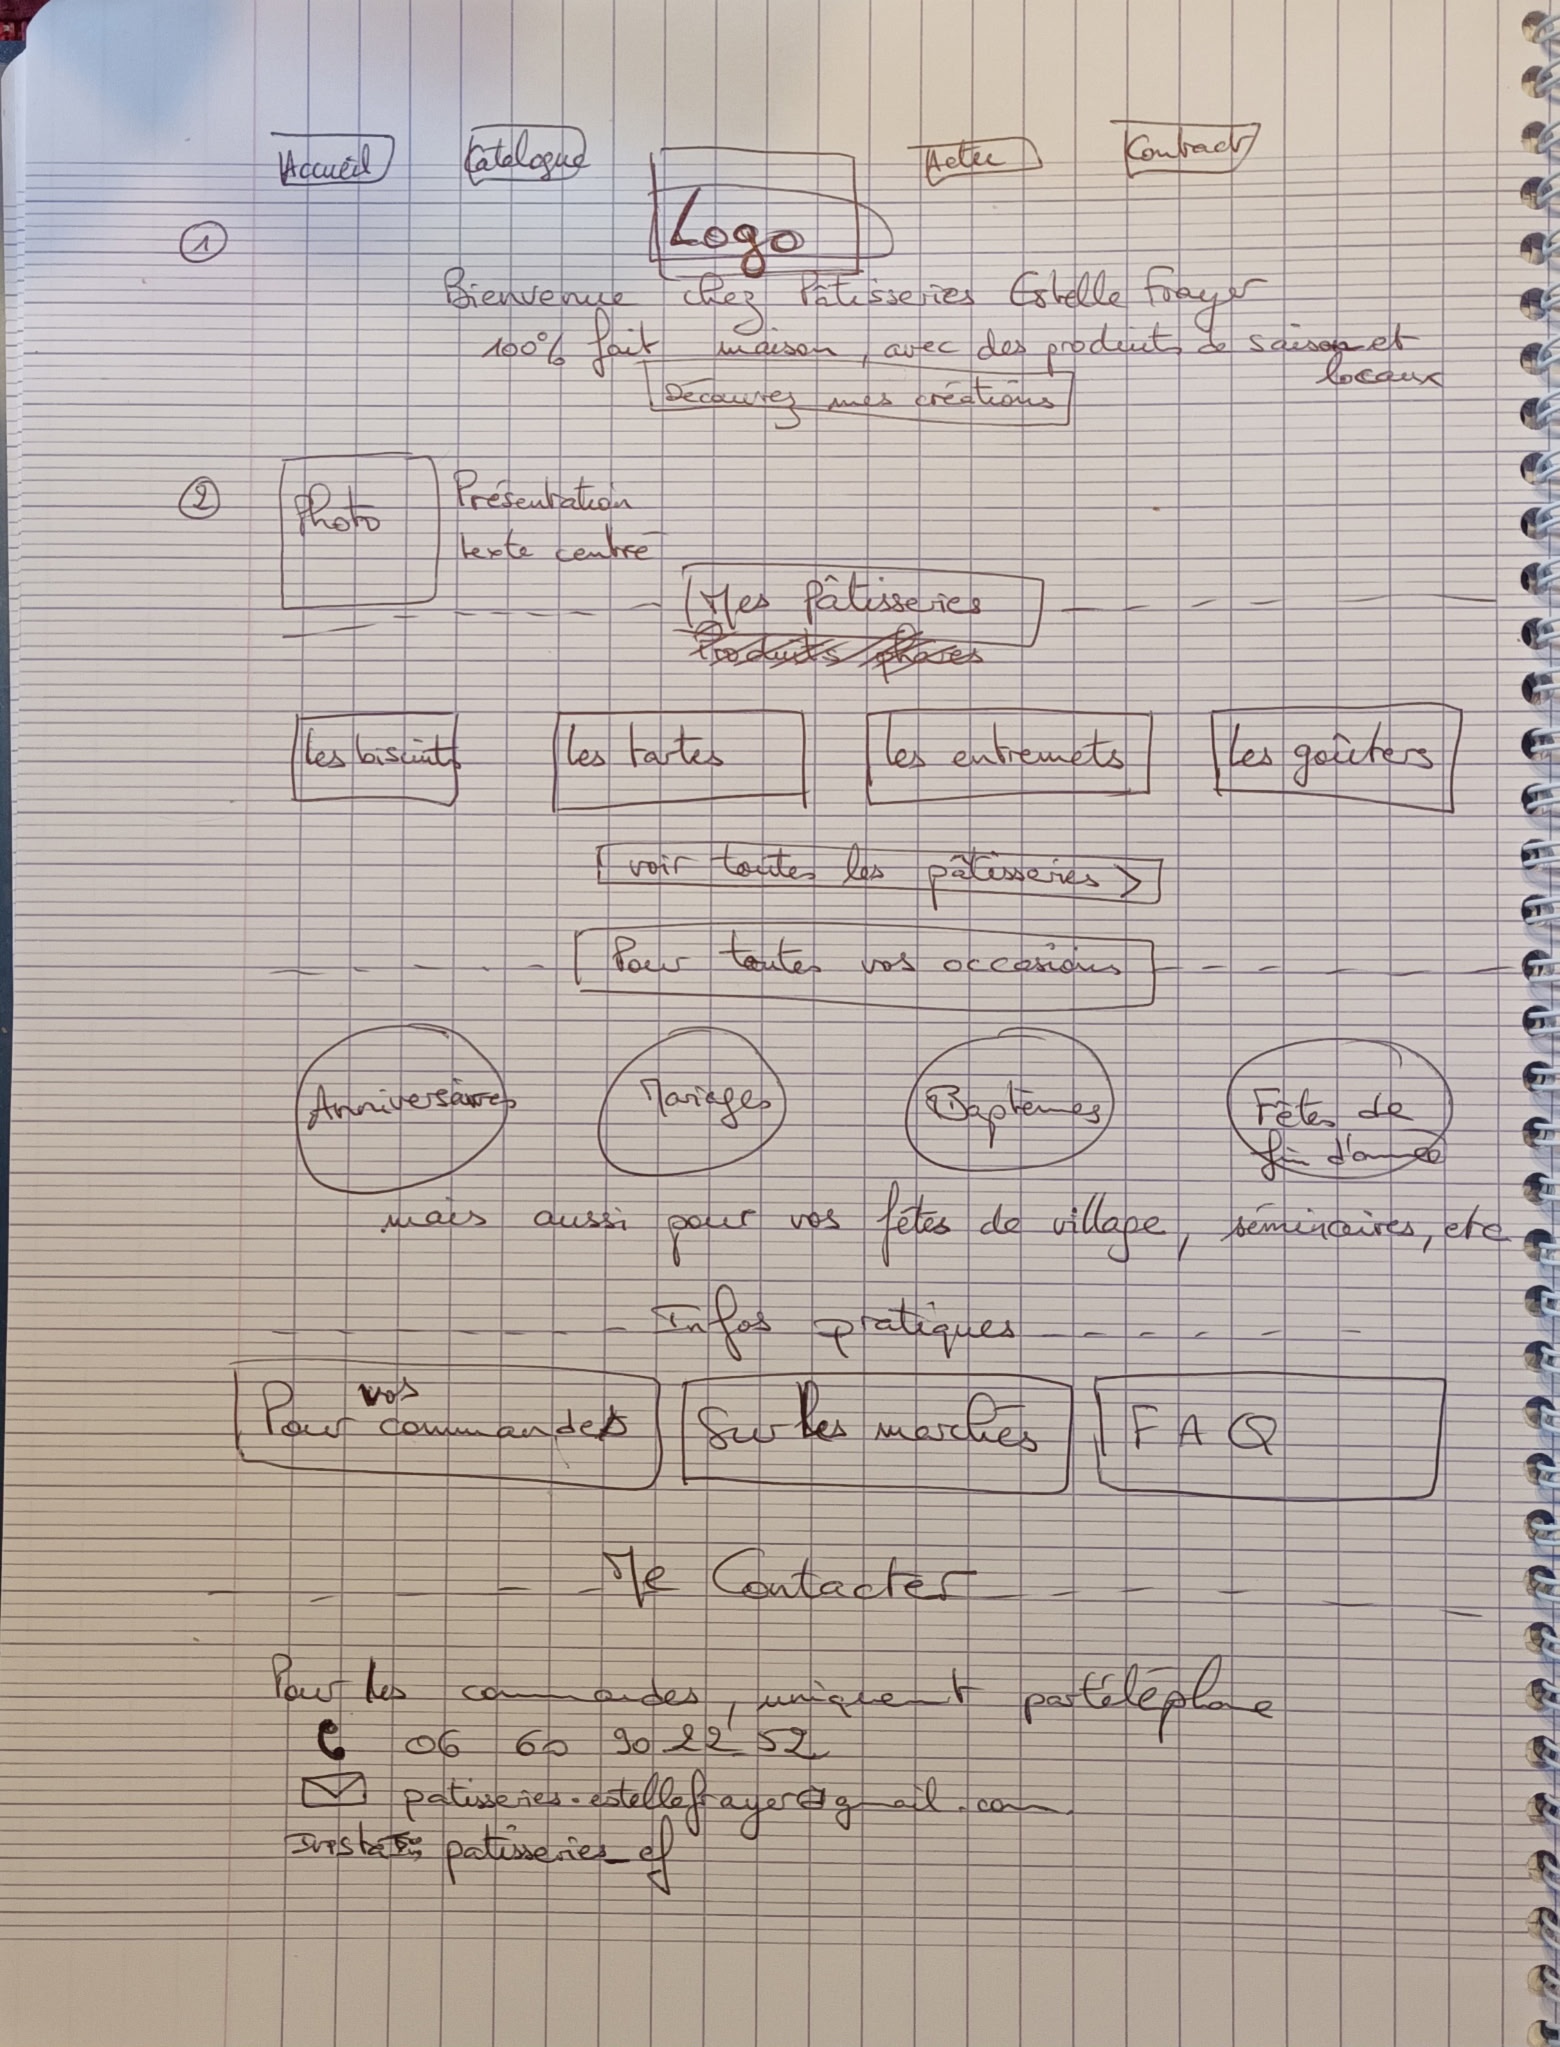 Accueil Catalogue Logo Actu Contact
1
Bienvenue chez Pâtisseries Estelle Frayer
100% fait maison, avec des produits de saison et
locaux
Découvrez mes créations
2
Photo
Présentation
texte centré
Mes pâtisseries
Produits phares
les biscuits les tartes les entremets les goûters
voir toutes les pâtisseries >
Pour toutes vos occasions
Anniversaires Mariages Baptêmes Fêtes de
fin d'année
mais aussi pour vos fêtes de village, séminaires, etc
Infos pratiques
Pour vos commandes Sur les marchés FAQ
Me Contacter
Pour les commandes, uniquement par téléphone
06 60 90 22 52
patisseries.estellefrayer@gmail.com
patisseries_ef